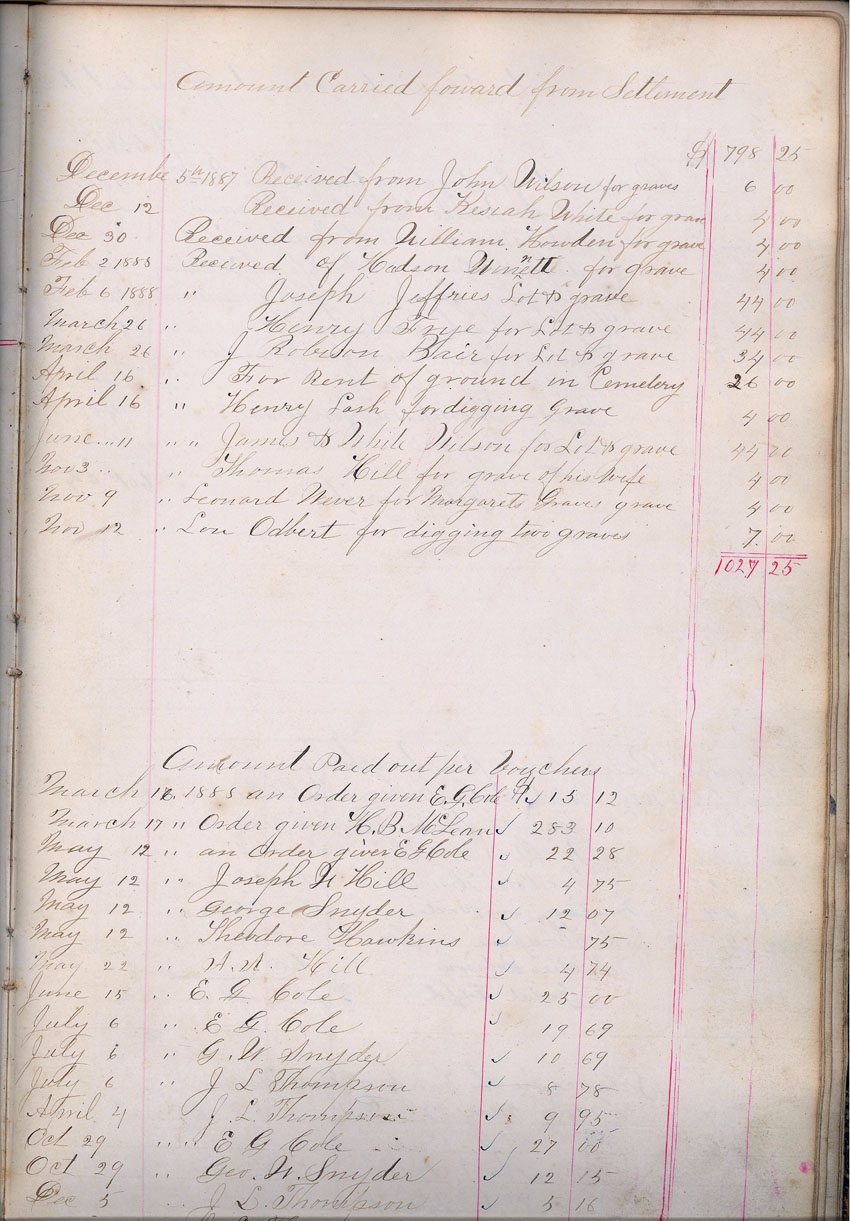 Amount Carried foward from Settlement
$ 798 25
December 5th 1887 Received from John Wilson for graves 6 00
Dec 12 Received from Kesiah White for grave 4 00
Dec 30 Received from William Howden for grave 4 00
Feb 2 1888 Received of Hudson Winnett for grave 4 00
Feb 6 1888 " Joseph Jeffries Lot & grave 44 00
March 26 " Henry Frye for Lot & grave 44 00
March 26 " J Robison Bair for Lot & grave 34 00
April 16 " For Rent of ground in Cemetery 26 00
April 16 " Henry Lash for digging Grave 4 00
June 11 " " James & White Wilson for Lot & grave 44 00
Nov 3 " Thomas Hill for grave of his wife 4 00
Nov 9 " Leonard Never for Margarets Graves grave 4 00
Nov 12 " Lou Odbert for digging two graves 7 00
1027 25
Amount Paid out per Vouchers
March 16 1888 an Order given E. G. Cole $ ✓ 15 12
March 17 " Order given H. B. McLean ✓ 283 10
May 12 " an order given E G Cole ✓ 22 28
May 12 " Joseph N Hill ✓ 4 75
May 12 " George Snyder ✓ 12 07
May 12 " Theodore Hawkins ✓ 75
May 22 " Hill ✓ 4 74
June 15 " E. G. Cole ✓ 25 00
July 6 " E G Cole ✓ 19 69
July 6 " G. W. Snyder ✓ 10 69
July 6 " J L Thompson ✓ 8 78
April 4 J. L. Thompson ✓ 9 95
Oct 29 " " E G Cole ✓ 27 00
Oct 29 " Geo. W. Snyder ✓ 12 15
Dec 5 " J L Thompson ✓ 5 16